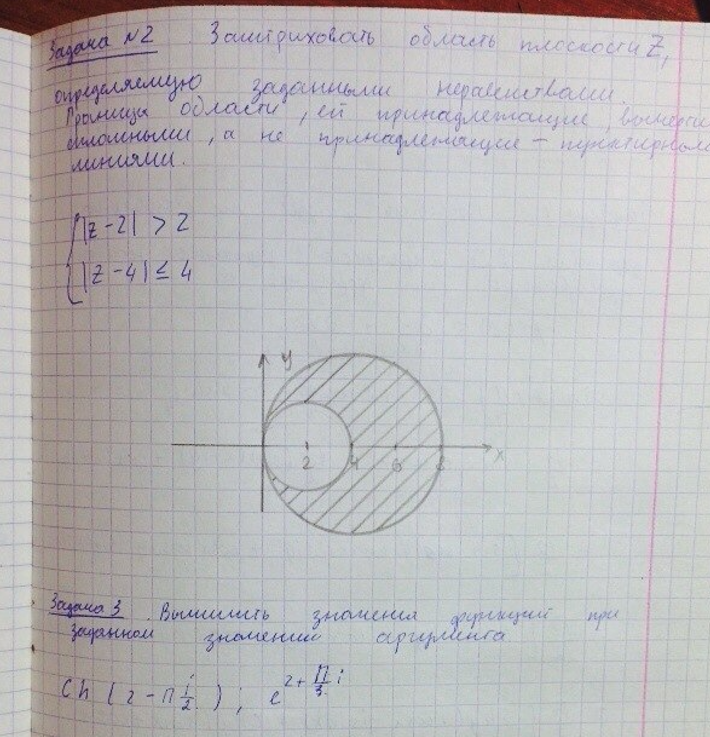 Задача №2 Заштриховать область плоскости Z,
определяемую заданными неравенствами.
Границы области, ей принадлежащие,
сплошными, а не принадлежащие – пунктирными
линиями.
|z-2| > 2
|z-4| ≤ 4
y
2 4 6 8 x
Задача 3 Вычислить значения функций при
заданном значении аргумента
ch (2 - П i/2); e^{2+ П/3 i}